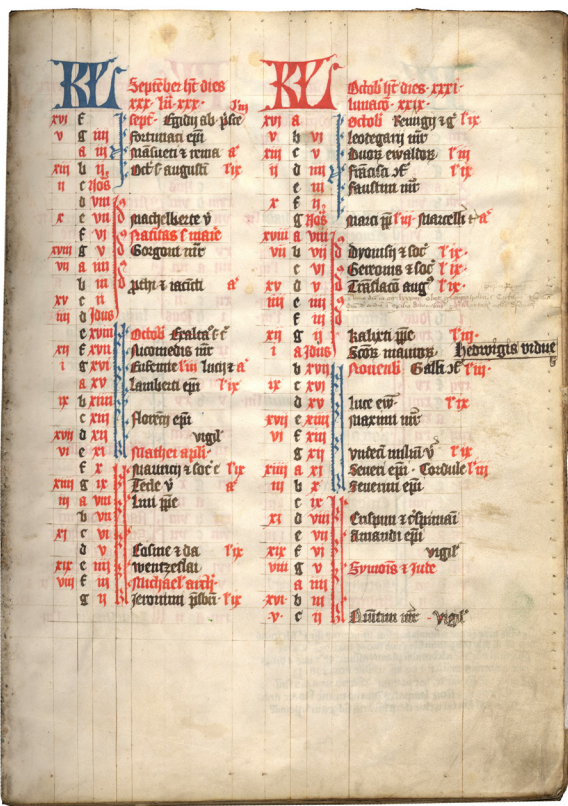 KL Septe̅ber ht dies
xxx · lu̅ · xxx ·
xvi f Sept · Egidij ab · p̅sce
v g iiii fortunati ep̅i
a iii
xiii b ii Oct s̅ augusti l' ix
ii c Nos
d viii
x e vii machelberte v̅
f vi Natiuitas s̅ marie
xviii g v Gorgoni m̅r
vii a iiii
b iii p̅thi & iacincti a
xv c ii
iiii d Idus
e xviii Octob̅
xii f xvii Nicomedis m̅r
i g xvi Eufemie l' iii lucij & a
a xv Lamberti ep̅i l' ix
ix b xiiii
c xiii floren̅ ep̅i
xvii d xii vigil'
vi e xi Mathei apl̅i ·
f x Mauricij & soc' l' ix
xiiii g ix Tecle v̅ a
iii a viii Lini p̅p̅e
b vii
xi c vi
d v Cosme & da l' ix
xix e iiii wentzeslai
viii f iii Michael' archi
g ii Jeronimi p̅sb̅ri · l' ix
KL Octob̅ ht dies · xxxi ·
lunac̅o · xxix ·
xvi a Octob̅ Remigij & g̅ l' ix
v b vi leodegarij m̅r
xiii c v Duor̅ ewaldor̅ l' iii
ii d iiii francisci c̅f l' ix
e iii faustini m̅r
x f ii
g Nos marci p̅p̅ l' iii · Marcelli & a
xviii a viii
vii b vii Dyonisij & soc' l' ix ·
c vi Gereonis & soc' l' ix ·
xv d v Tra̅slac̅o aug' l' ix ·
iiii e iiii
f iii
xii g ii kalixti p̅p̅e l' iii ·
i a Idus Sc̅or̅ mauror̅ · Hedwigis vidue
b xvii Nouenb̅ Galli c̅f l' iii ·
ix c xvi
d xv luce ew̅ · l' ix
xvii e xiiii maximi m̅r
vi f xiii
g xii vndeci̅ miliu̅ v̅ l' ix
xiiii a xi Seueri ep̅i · Cordule l' iii
iii b x Seuerini ep̅i
c ix
xi d viii Crispini & c̅spiniani
e vii Amandi ep̅i
xix f vi vigil'
viii g v Symo̅is & Jude
a iiii
xvi · b iii
v · c ii Quintini m̅r · vigil'